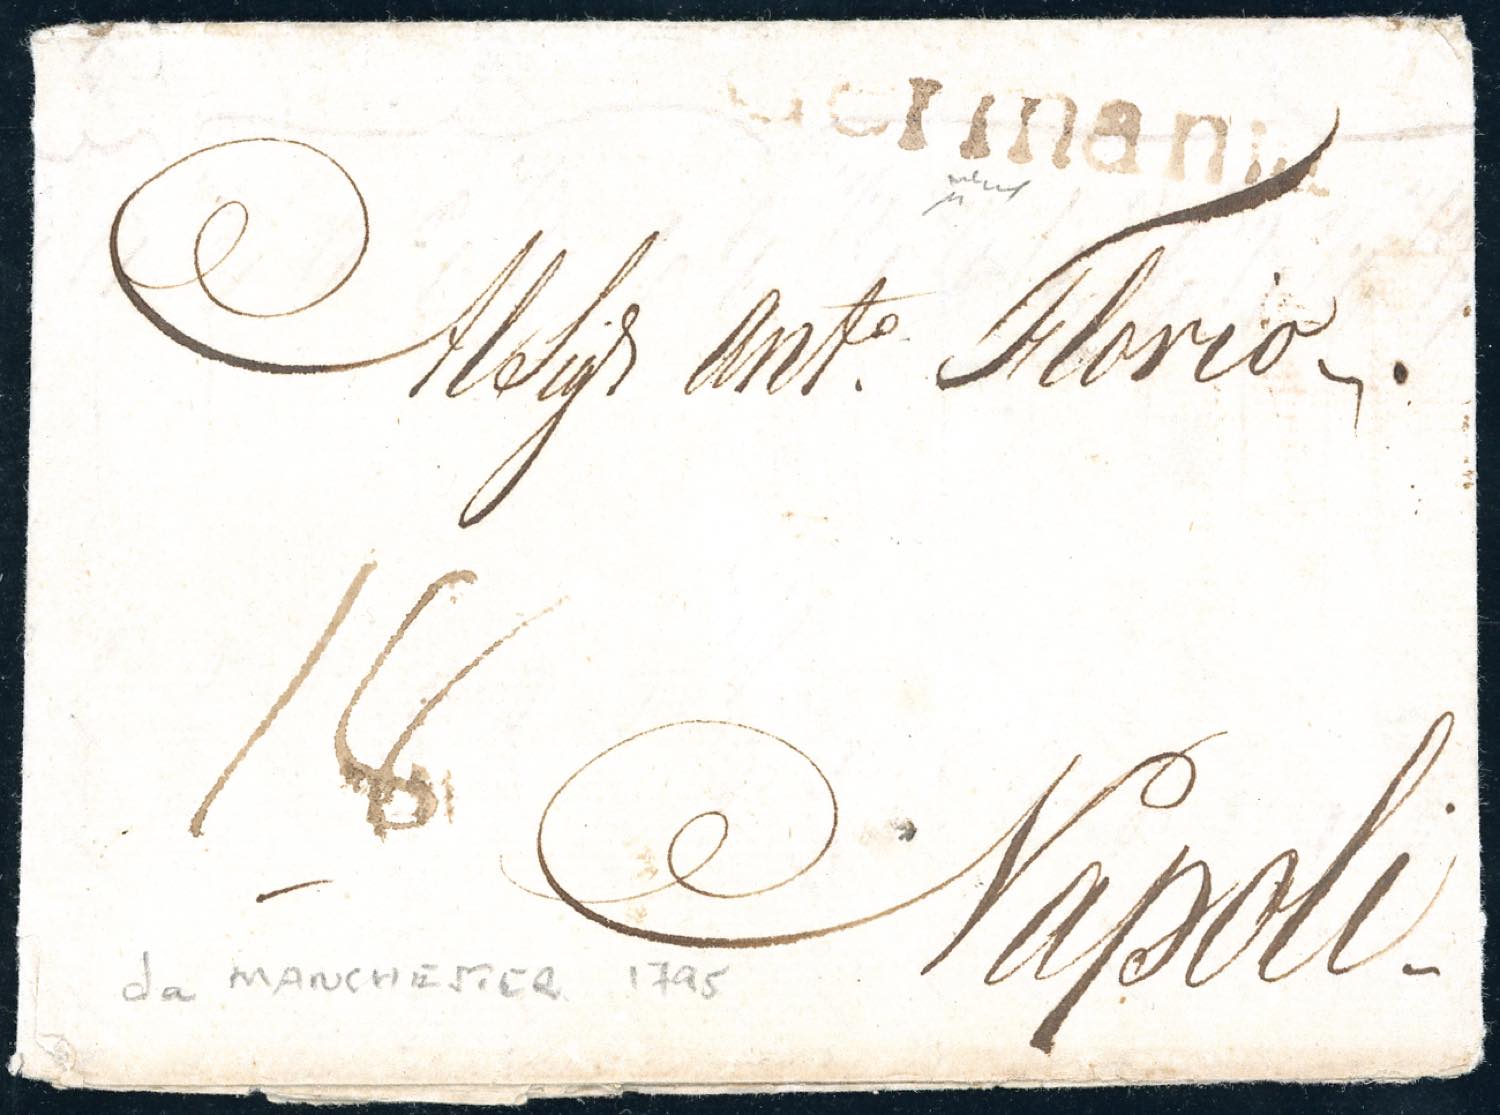 Germania
Al Sigr Anto. Florio.
18
Napoli.
da MANCHESTER 1795